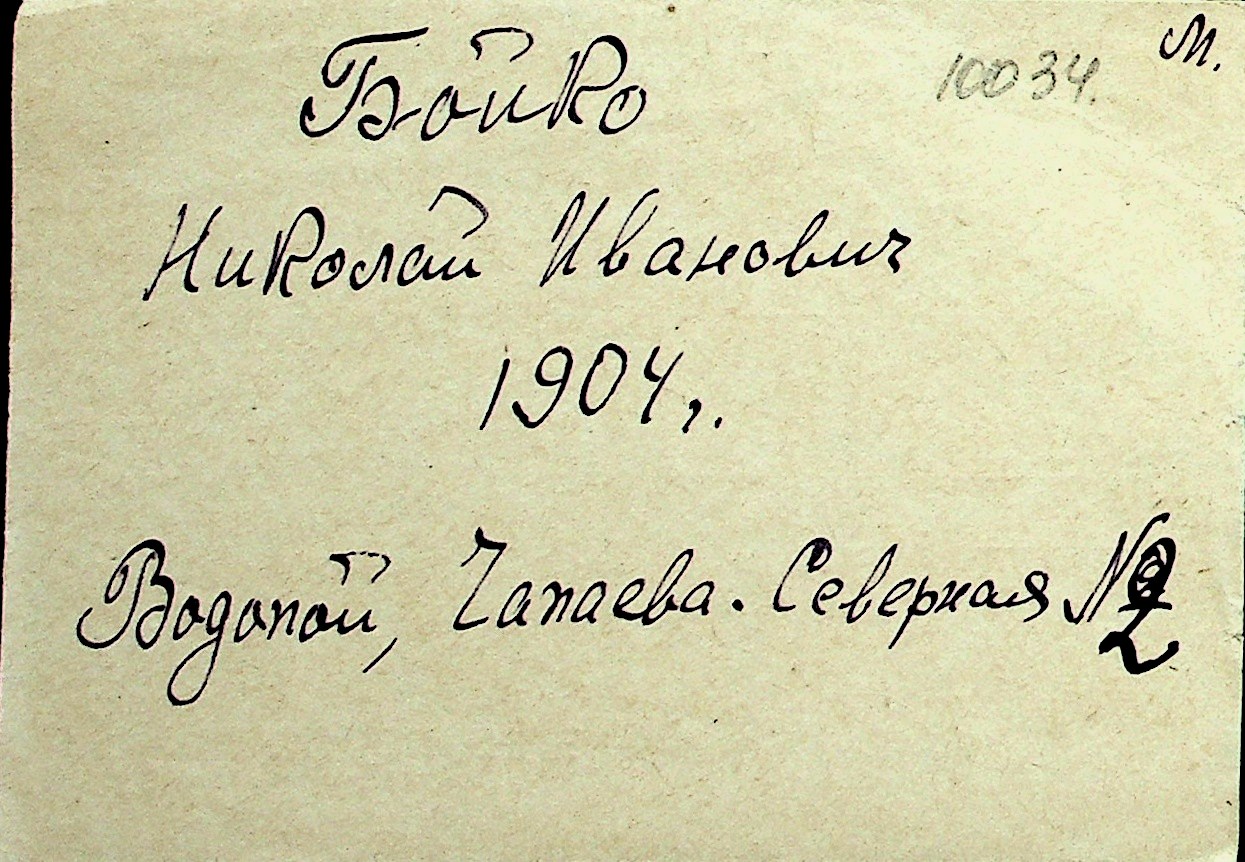 м.
10034.
Бойко
Николай Иванович
1904г.
Водопой, Чапаева. Северная № 2